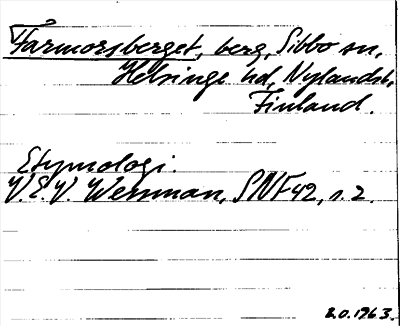 Farmorsberget, berg, Sibbo sn,
Helsinge hd, Nylands l,
Finland.
Etymologi.
V.E.V. Wessman, SNF 42, s. 2.
B.O. 1963.